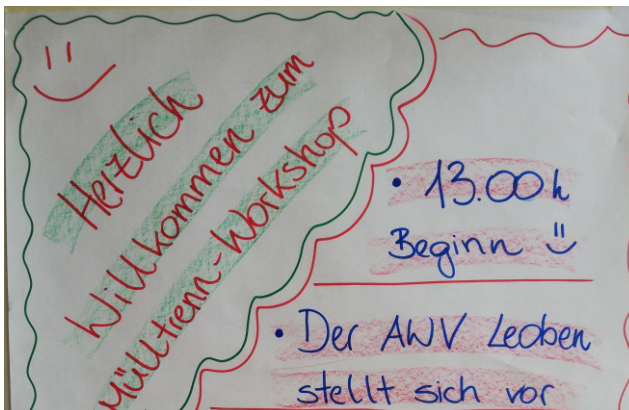 Herzlich
Willkommen zum
Mülltrenn-Workshop
• 13.00h
Beginn
• Der AWV Leoben
stellt sich vor